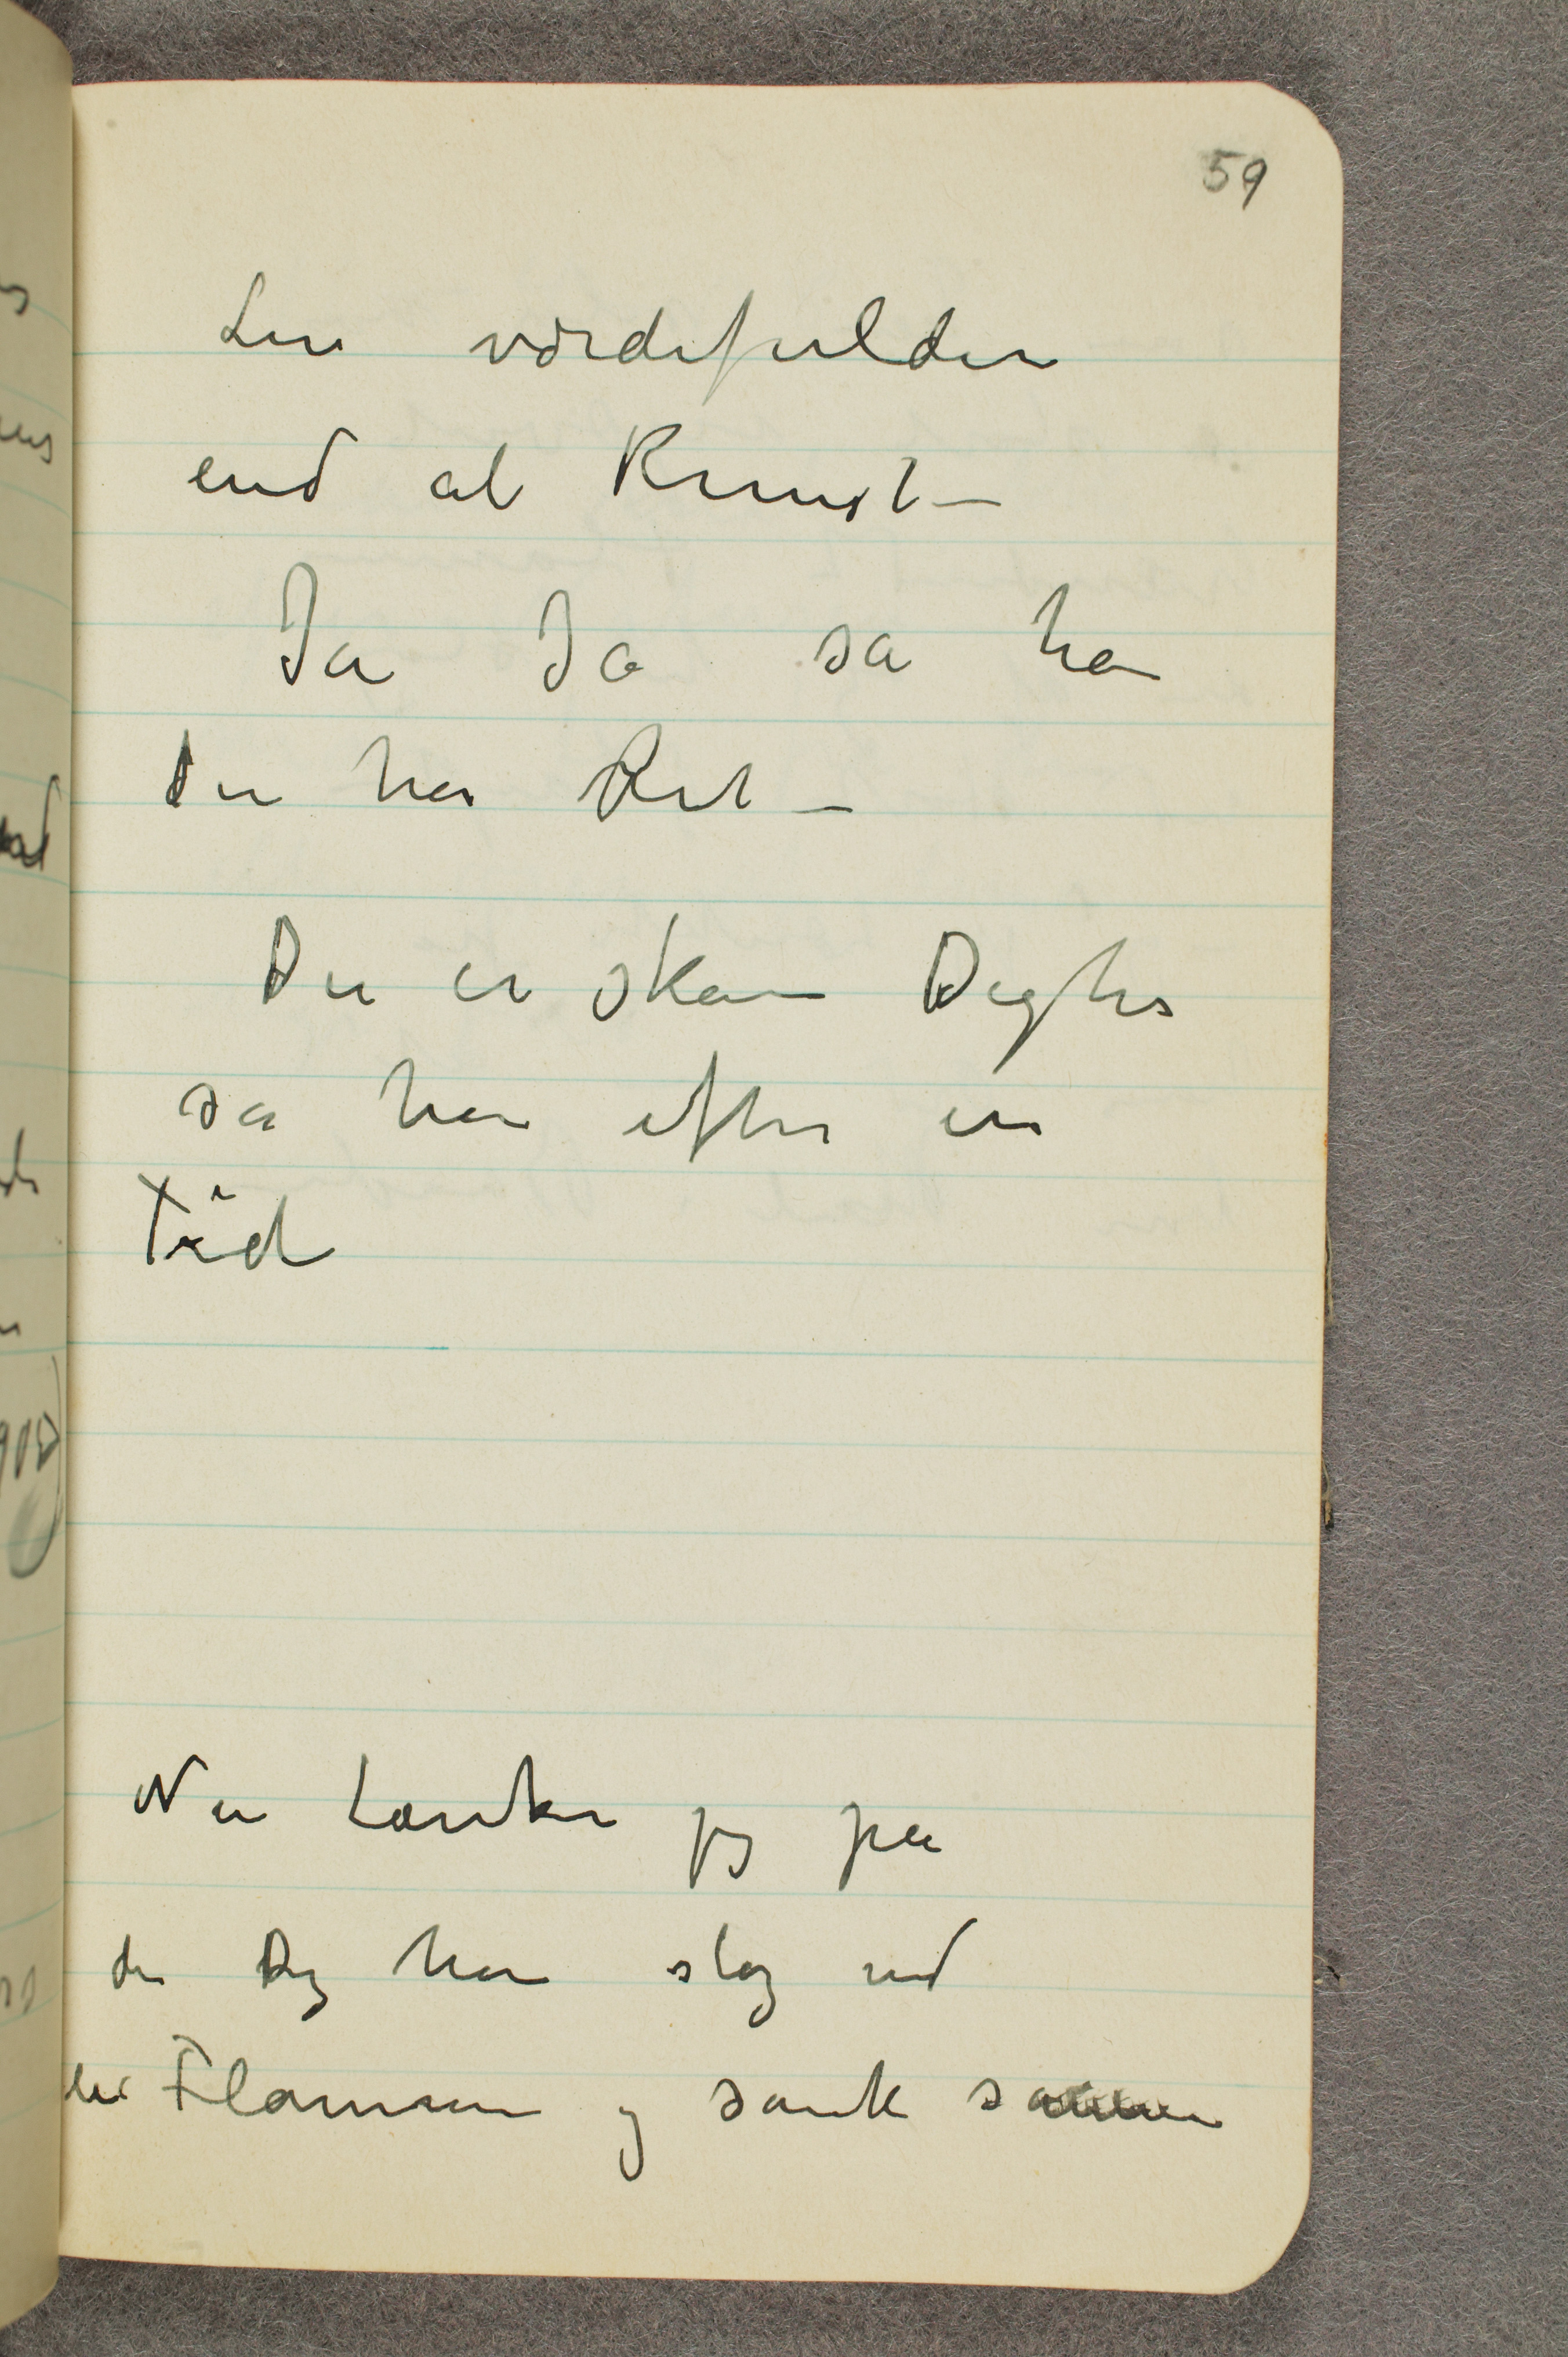 59
Len værdifulder
end al Kunst –
Ja Ja sa han
Du har Ret –
Du er skam Degter
sa han efter en
Tid
Nu tænker jeg på
der Dig han slog ned
der Flammen og sank sammen